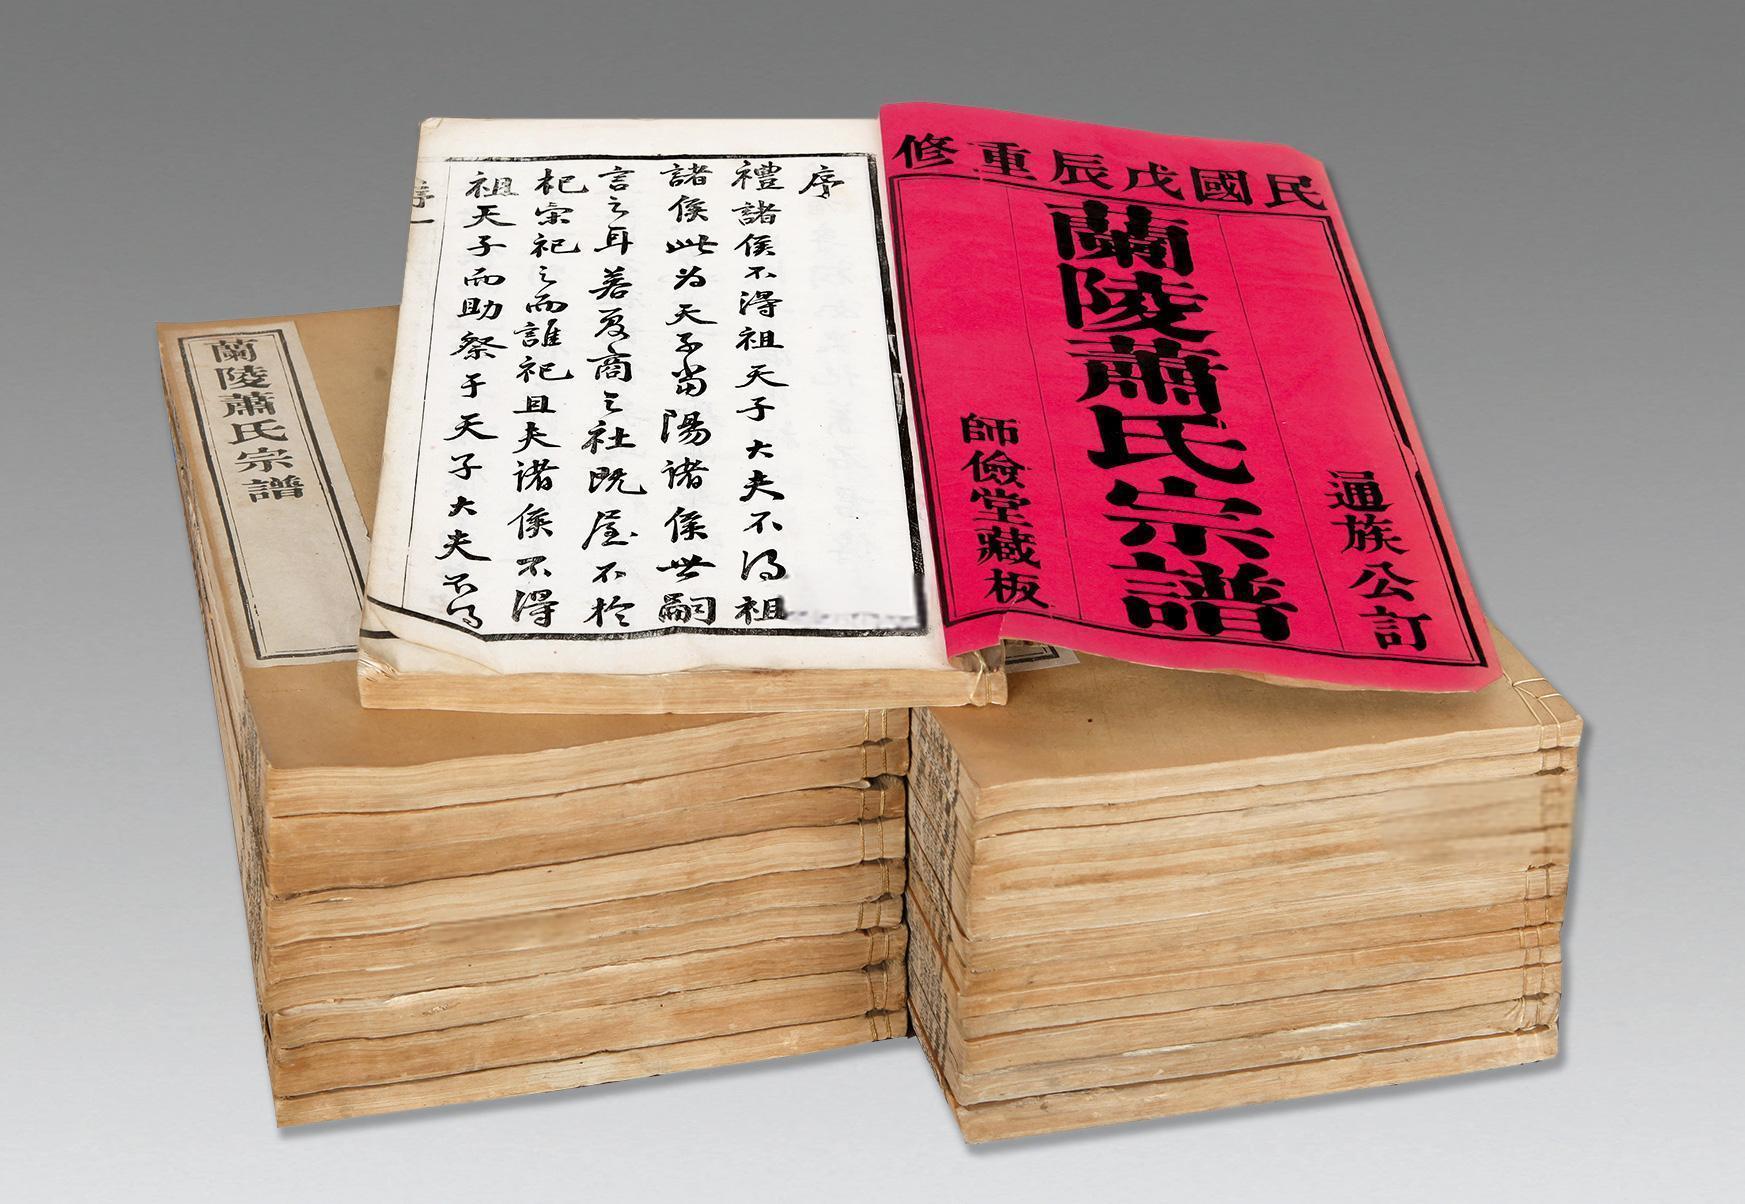 民國戊辰重修
通族公訂
蘭陵蕭氏宗譜
師儉堂藏板
序
禮諸侯不得祖天子大夫不得祖
諸侯此為天子當陽諸侯世嗣
言之耳若夏商之社既屋不於
杞宋祀之而誰祀且夫諸侯不得
祖天子而助祭于天子大夫不得
序一
蘭陵蕭氏宗譜